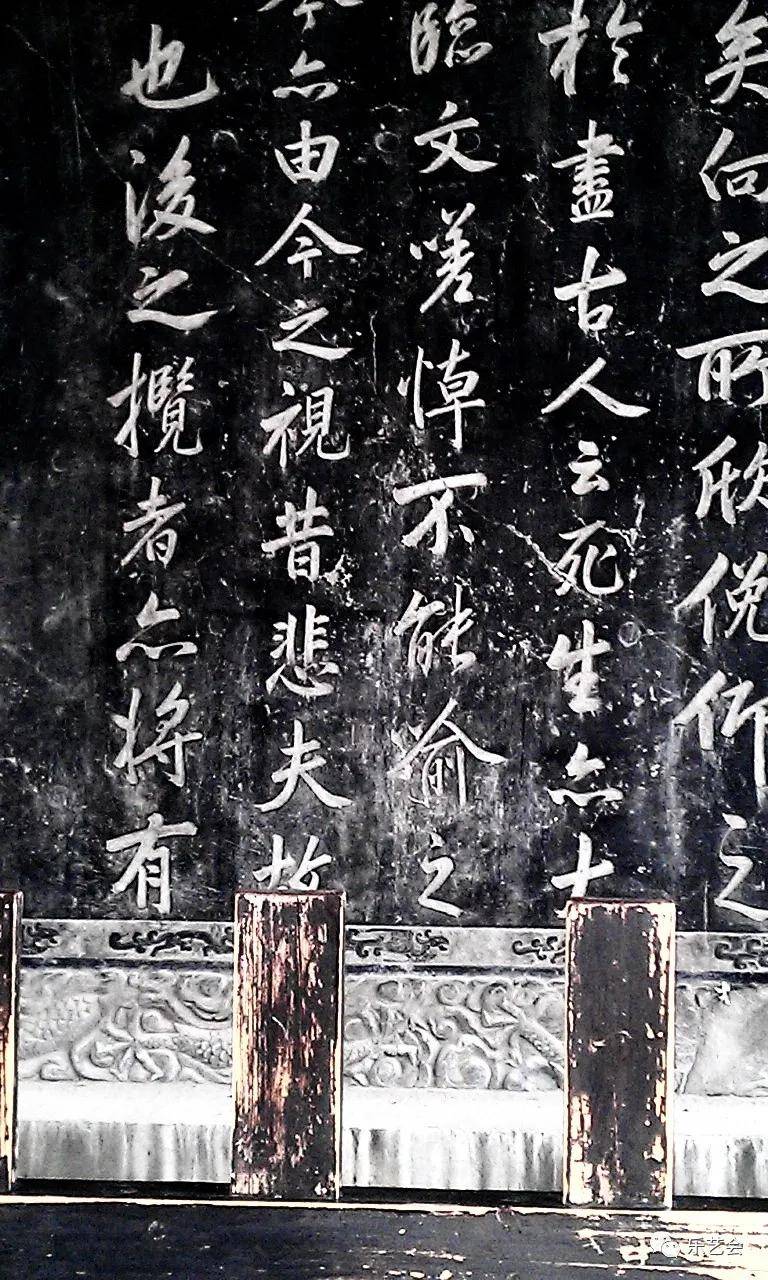 矣向之所欣俛仰之
於盡古人云死生亦大
臨文嗟悼不能喻之
今亦由今之視昔悲夫故
也後之攬者亦將有
乐艺会